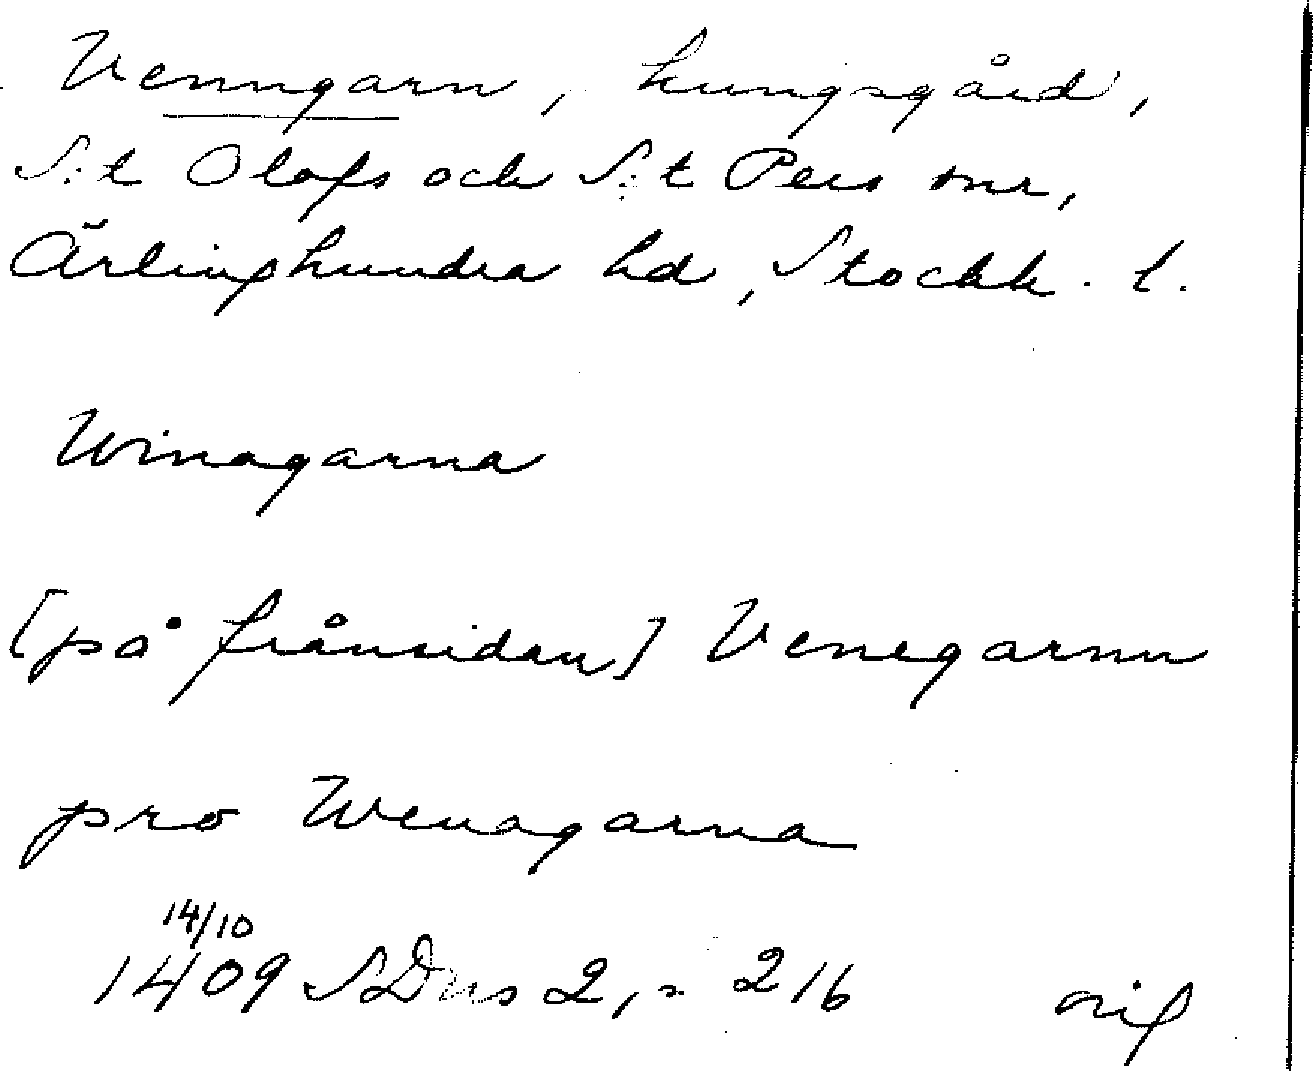 Venngarn, kungsgård,
S:t Olofs och S:t Pers snr,
Ärlinghundra hd, Stockh. l.
Winagarna
[på frånsidan] Venegarnn
pro Wenagarna
14/10
1409 SDns 2, s. 216 orig